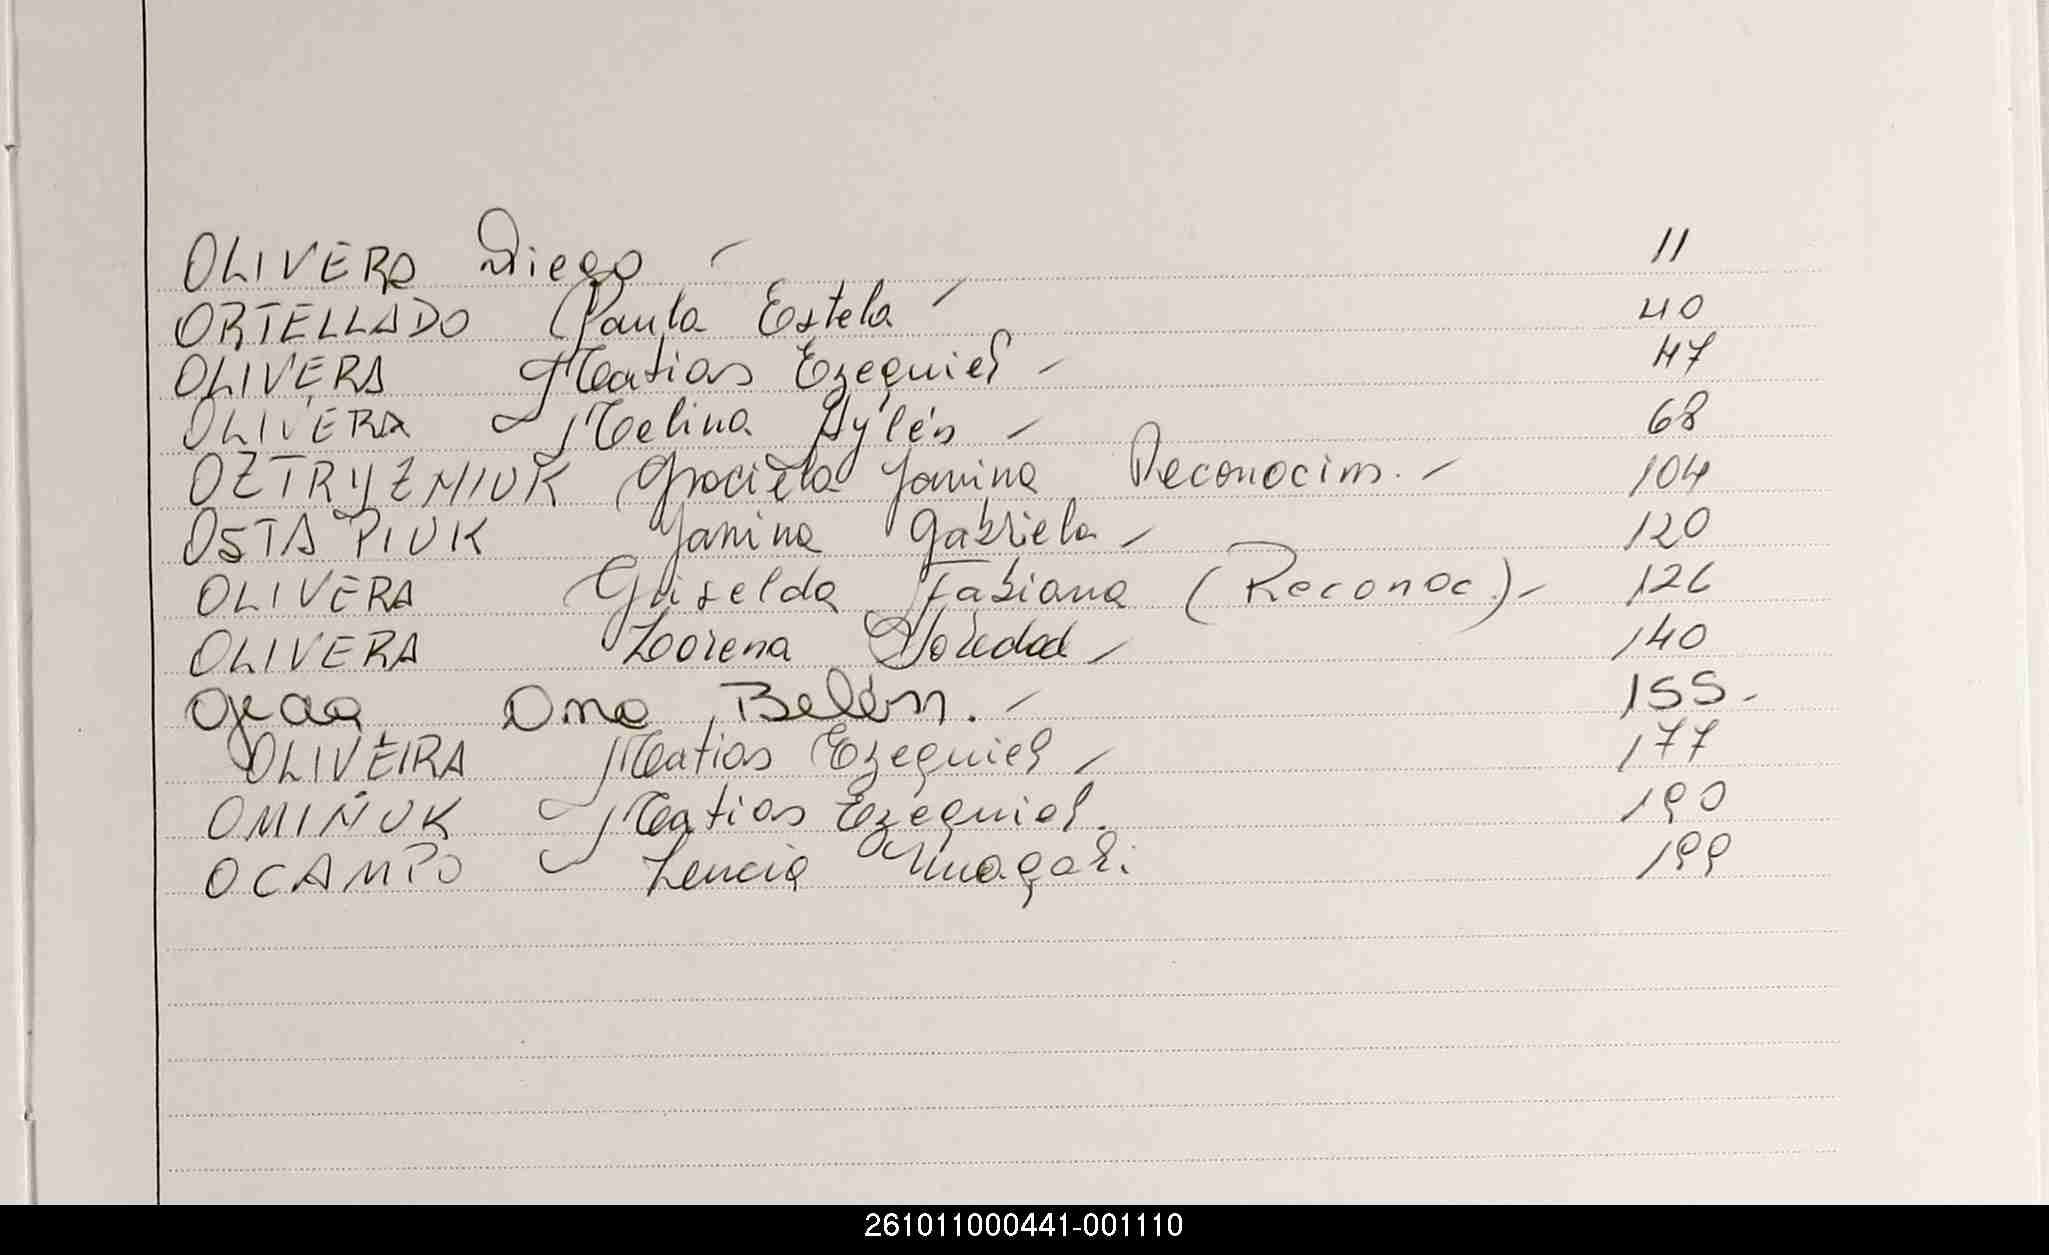 OLIVERA Diego - 11
ORTELLADO Paula Estela - 40
OLIVERA Matias Ezequiel - 47
OLIVERA Melina Aylén - 68
OZTRYZNIUK Graciela Janina Reconocim. - 104
OSTAPIUK Janina Gabriela - 120
OLIVERA Griselda Fabiana (Reconoc.) - 126
OLIVERA Lorena Soledad - 140
Ojeda Ana Belén. - 155.
OLIVEIRA Matias Ezequiel - 177
OMIÑUK Matias Ezequiel. 190
OCAMPO Lucia Magali. 199
261011000441-001110